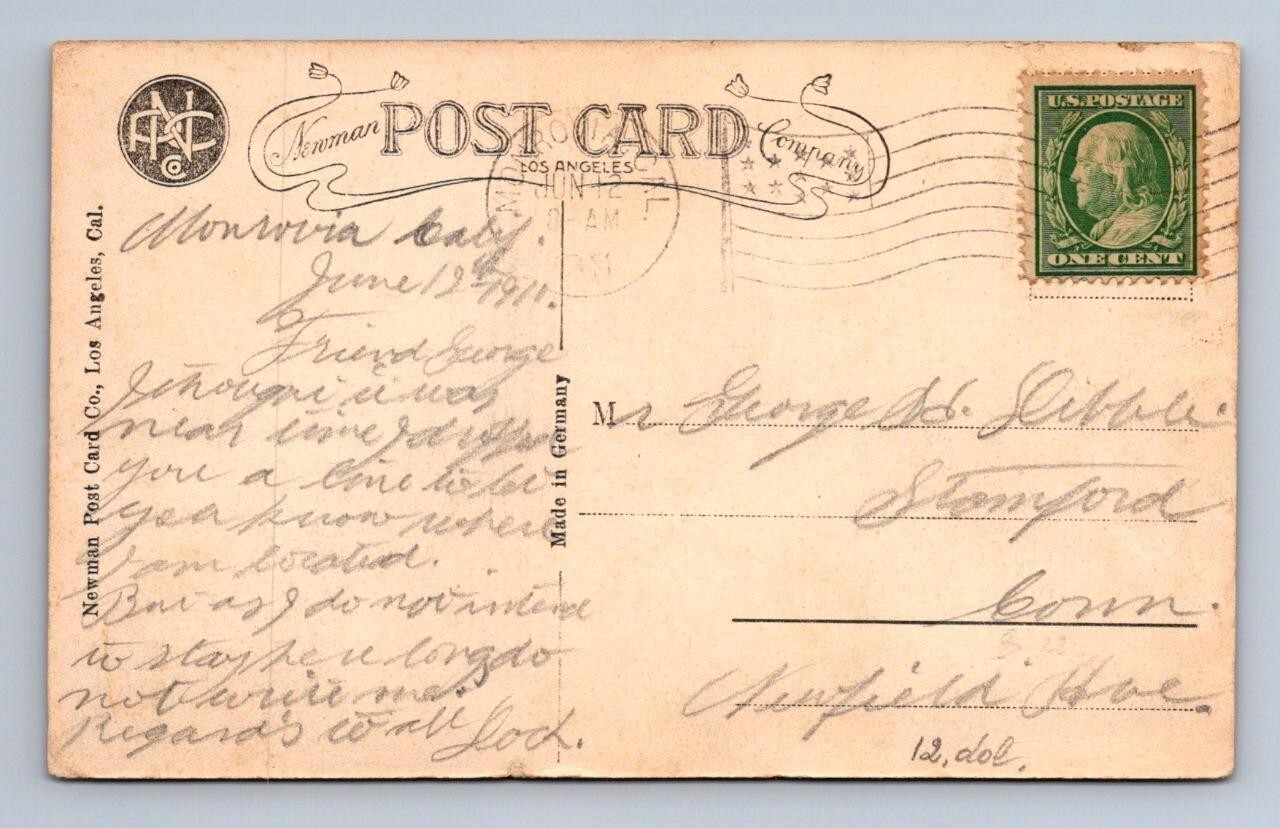 Newman POST CARD Company
LOS ANGELES
MONROVIA CAL.
JUN 12
8 AM
1911
U.S. POSTAGE
ONE CENT
Newman Post Card Co., Los Angeles, Cal.
Made in Germany
Monrovia Caly.
June 12th 1911.
Friend George
I thought it was
near time I drop
you a line to let
you know where
I am located.
But as I do not intend
to stay here long do
not write me.
Regards to all Doch.
Mr George H. Dibble.
Stamford
Conn.
Newfield Ave.
12, dol.